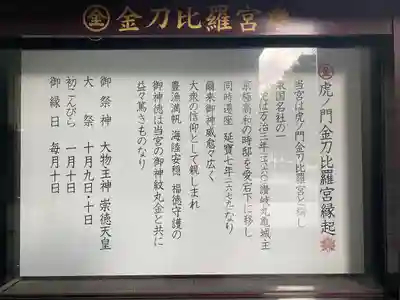 金 金刀比羅宮
金 虎ノ門金刀比羅宮縁起
当宮は虎ノ門金刀比羅宮と称し
東国名社の一
万治三年(一六六〇)讃岐丸亀城主
京極高和の時邸を愛宕下に移し
同時遷座 延宝七年(一六七九)なり
爾来御神威愈々広く
大衆の信仰として親しまれ
豊漁満帆 海陸安穏 福徳守護の
御神徳は当宮の御神紋丸金と共に
益々篤きものなり
御祭神 大物主神 崇徳天皇
大祭 十月九日・十日
初こんぴら 一月十日
御縁日 毎月十日